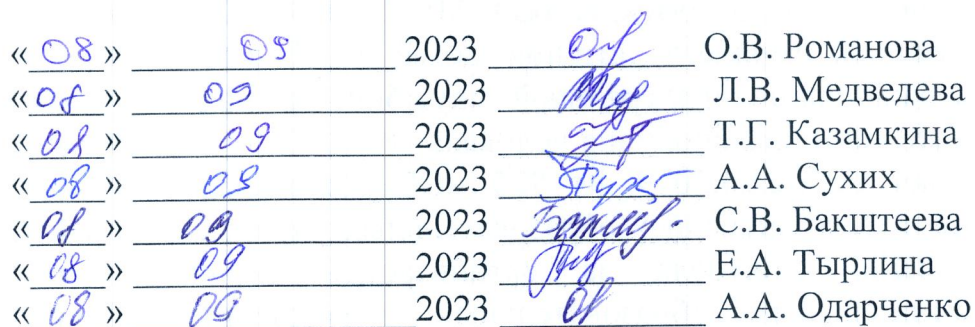 « 08 » 09 2023 О.В. Романова
« 08 » 09 2023 Л.В. Медведева
« 08 » 09 2023 Т.Г. Казамкина
« 08 » 09 2023 А.А. Сухих
« 08 » 09 2023 С.В. Бакштеева
« 08 » 09 2023 Е.А. Тырлина
« 08 » 09 2023 А.А. Одарченко